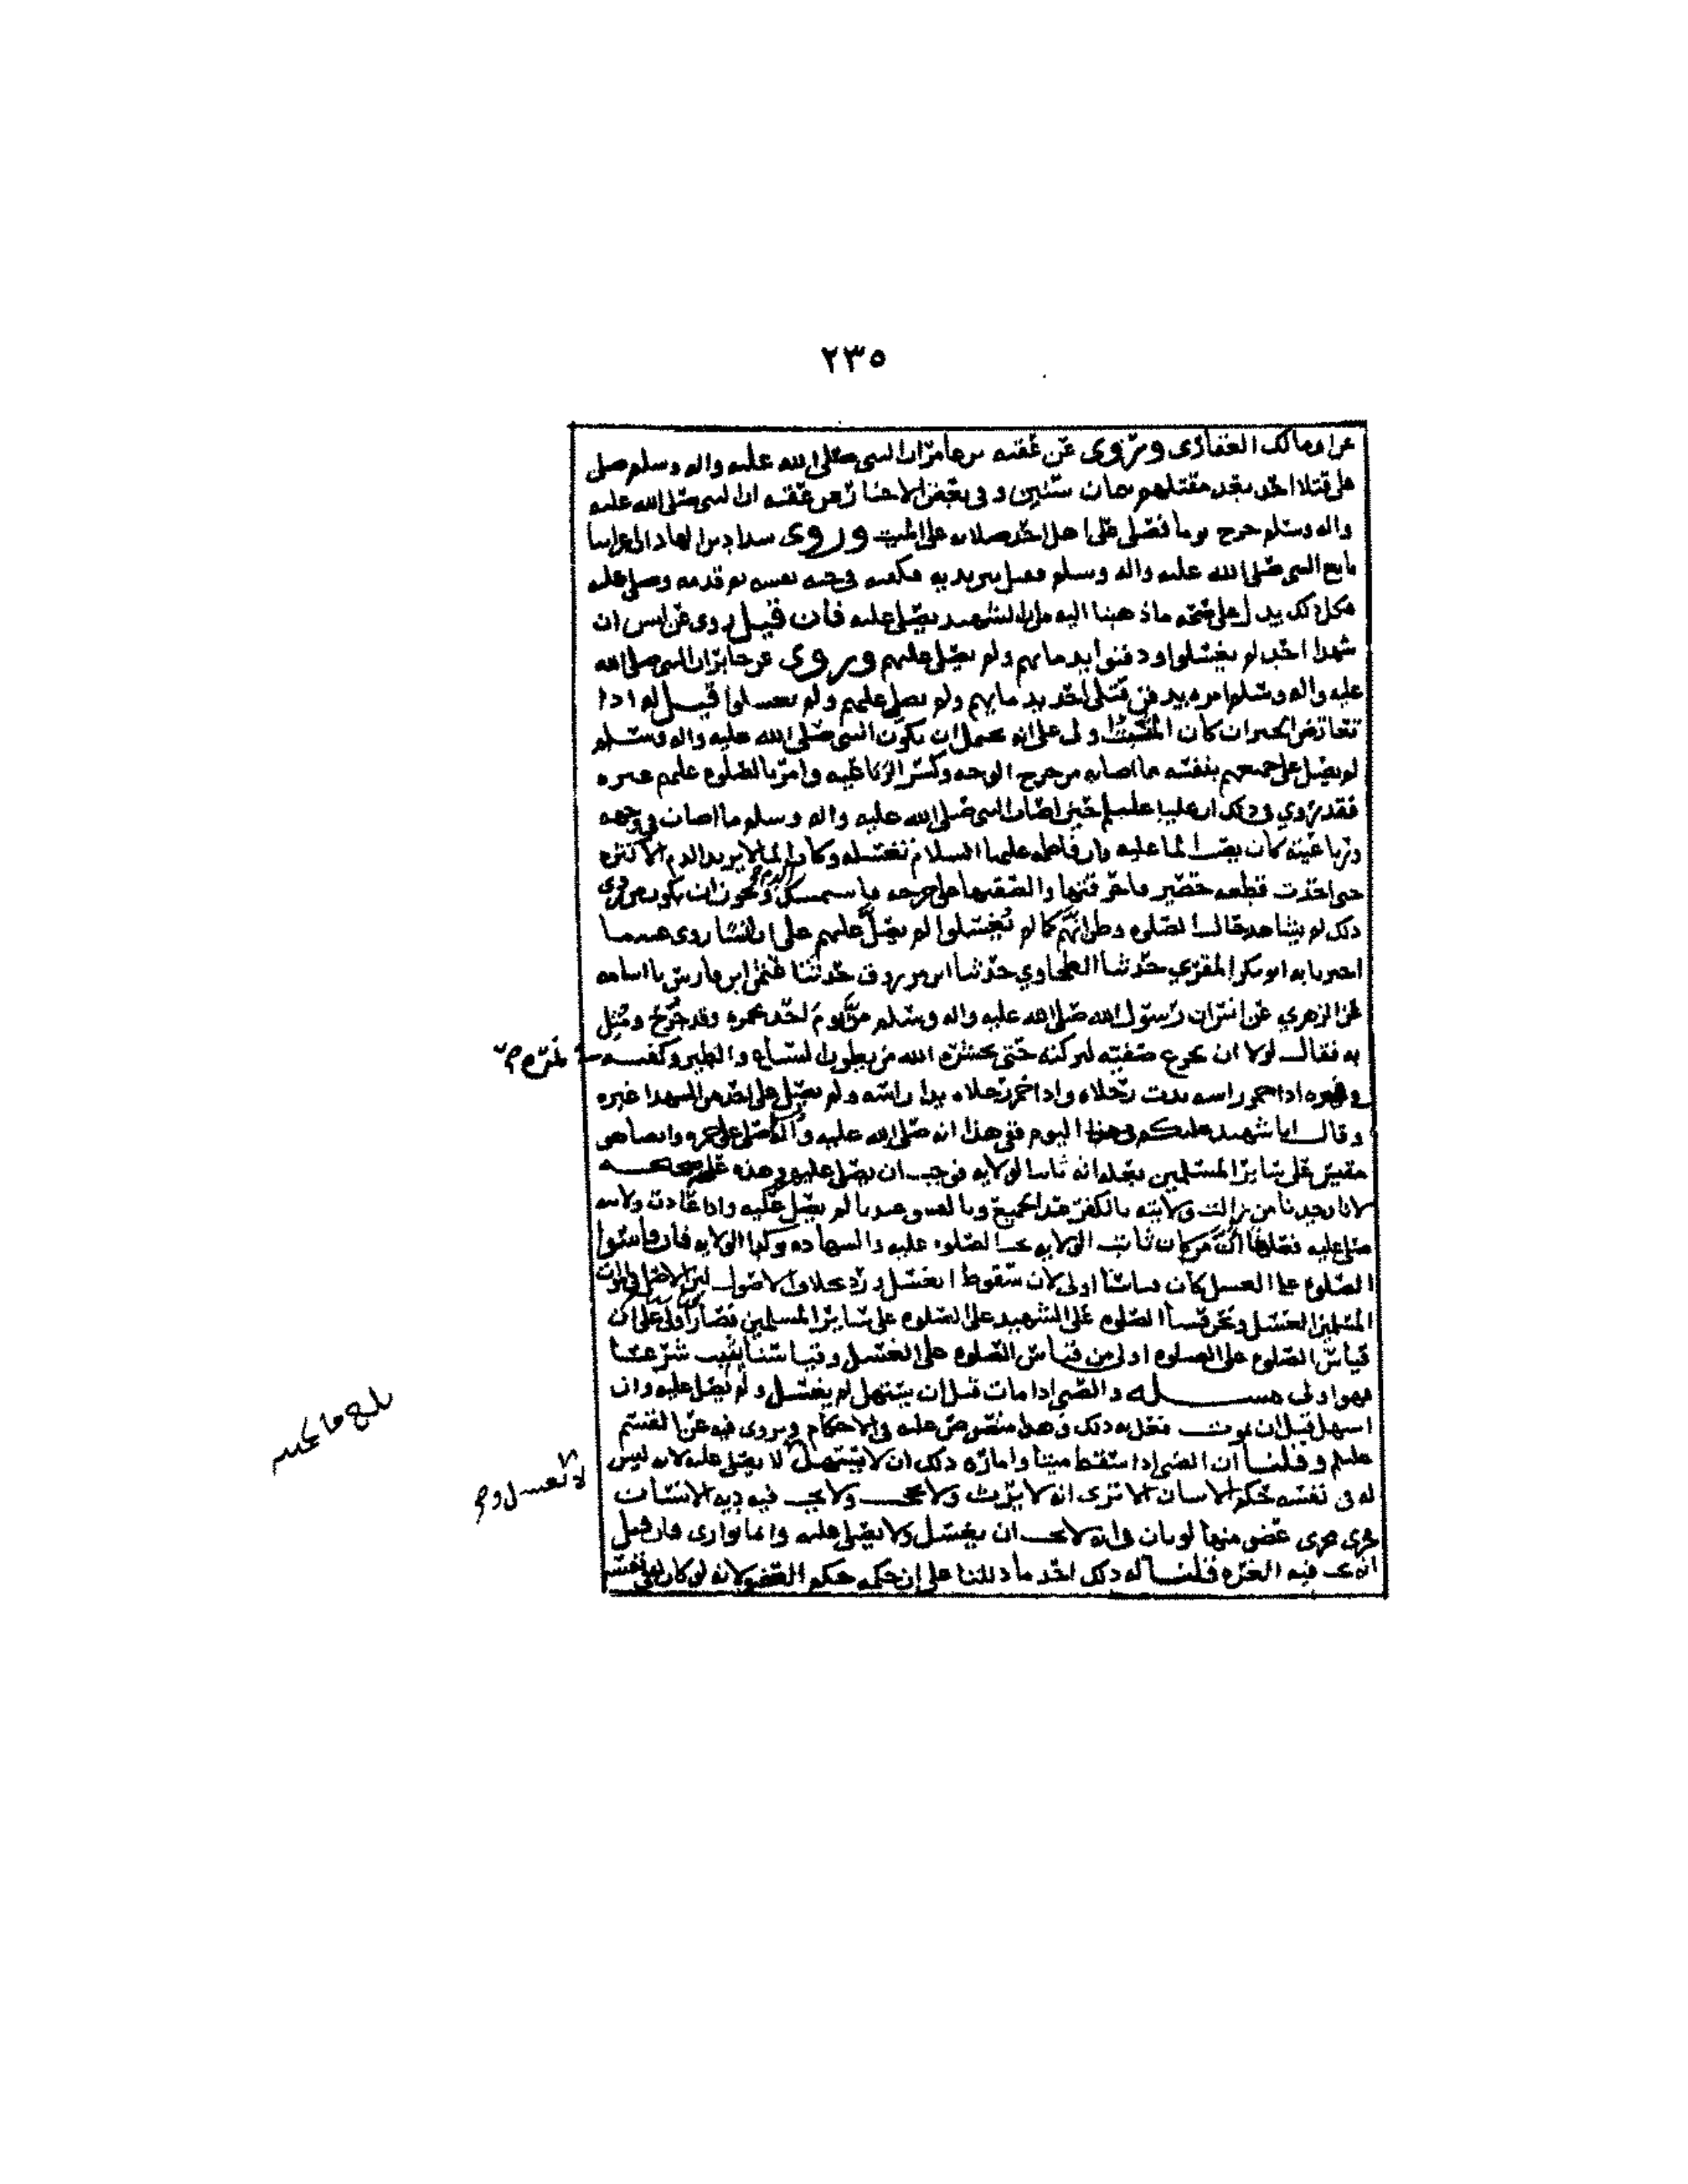 ٢٣٥
عن ابى مالك الغفارى ويروى عن عقبه بن عامر ان النبى صلى الله عليه واله وسلم صلى
على قتلا احد بعد مقتلهم بمان سنين وفى بعض الاخبار عن عقبه ان النبى صلى الله عليه
واله وسلم خرج يوما فصلى على اهل احد صلاته على الميت وروى شداد بن الهاد ان اعرابيا
بايع النبى صلى الله عليه واله وسلم فقتل بين يديه فكفنه فى جبه نفسه ثم قدمه وصلى عليه
فكل ذلك يدل على صحه ما ذهبنا اليه من ان الشهيد يصلى عليه فان قيل روى عن انس ان
شهدا احد لم يغسلوا ودفنوا بدمايهم ولم يصلى عليهم وروى عن جابر ان النبى صلى الله
عليه واله وسلم امر بدفن قتلى احد بدمايهم ولم يصلى عليهم ولم يغسلوا قيل له اذا
تعارض الخبران كان المثبت اولى على انه يحمل ان يكون النبى صلى الله عليه واله وسلم
لم يصل على جميعهم بنفسه لما اصابه من جرح الوجه وكسر الرباعيه وامر بالصلوه عليهم غيره
فقد روي فى ذلك ان عليا عليلم حين اصاب النبى صلى الله عليه واله وسلم ما اصاب فى وجهه
ورباعيته كان يصب الما عليه وان فاطمه عليها السلام تغسله وكان الما لا يزيد الدم الا كثره
حتى اخذت قطعه حصير فاحرقتها والصقتها على جرحه فاستمسك الدم ويجوز ان يكون من روى
ذلك لم يشاهد حال الصلوه وظن انهم كما لم يغسلوا لم يصل عليهم على ان انسا روى عنه ما
اخبرنا به ابو بكر المقري حدثنا الطحاوي حدثنا ابن مرزوق حدثنا عثمن ابن فارس نا اسامه
عن الزهري عن انس ان رسول الله صلى الله عليه واله وسلم مر يوم احد بحمزه وقد جرح ومثل
به فقال لولا ان تجزع صفيه لتركته حتى يحشره الله من بطون السباع والطير وكفنه
نمره
اذا خمر راسه بدت رجلاه واذا خمر رجلاه بدا راسه ولم يصل على احد من الشهدا غيره
وقال انا شهيد عليكم فى هذا اليوم ففى هذا انه صلى الله عليه واله صلى على حمزه وايضا هو
مقيس على ساير المسلمين بعله انه ثابت الولايه فوجب ان يصلى عليه وهذه عله صحيحه
لانا وجدنا من زالت ولايته بالكفر عند الجميع وبالفسق عندنا لم يصل عليه واذا عادت ولايته
صلى عليه فعلمنا ان من كان ثابت الولايه يجب الصلوه عليه والشهاده توكد الولايه فان قاسوا
الصلوه على الغسل كان قياسنا اولى لان سقوط الغسل ورد بخلاف الاصول لان الاصل فى اموات
المسلمين الغسل ونحن قسنا الصلوه على الشهيد على الصلوه على ساير المسلمين فصار اولى على ان
قياس الصلوه على الصلوه اولى من قياس الصلوه على الغسل وقياسنا يثبت شرعا
فهو اولى مسله والصبى اذا مات قبل ان يستهل لم يغسل ولم يصل عليه وان
استهل قبل ان يموت فعل به ذلك وهذا منصوص عليه فى الاحكام ويروى فيه عن القسم
عليلم وقلنا ان الصبى اذا سقط ميتا واماره ذلك ان لا يستهل لا يصلى عليه لانه ليس
لا يغسل و
له فى نفسه حكم الانسان الا ترى انه لا يرث ولا يحجب ولا يجب فيه ديه الانسان
فجرى مجرى عضو منها لو بان فى انه لا يجب ان يغسل ولا يصلى عليه وانما يوارى فان قيل
انه يجب فيه الغره قلنا له ذلك احد ما دللنا على ان حكمه حكم العضو لانه لو كان له فى نفسه